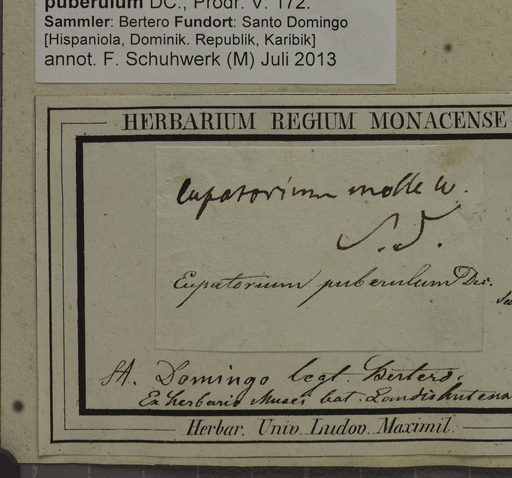 puberulum DC., Prodr. V: 172.
Sammler: Bertero Fundort: Santo Domingo
[Hispaniola, Dominik. Republik, Karibik]
annot. F. Schuhwerk (M) Juli 2013
HERBARIUM REGIUM MONACENSE
Eupatorium molle W.
S. D.
Eupatorium puberulum Dec.
St. Domingo legt. Bertero.
Ex herbario Musei bat. Landishutens
Herbar. Univ. Ludov. Maximil.